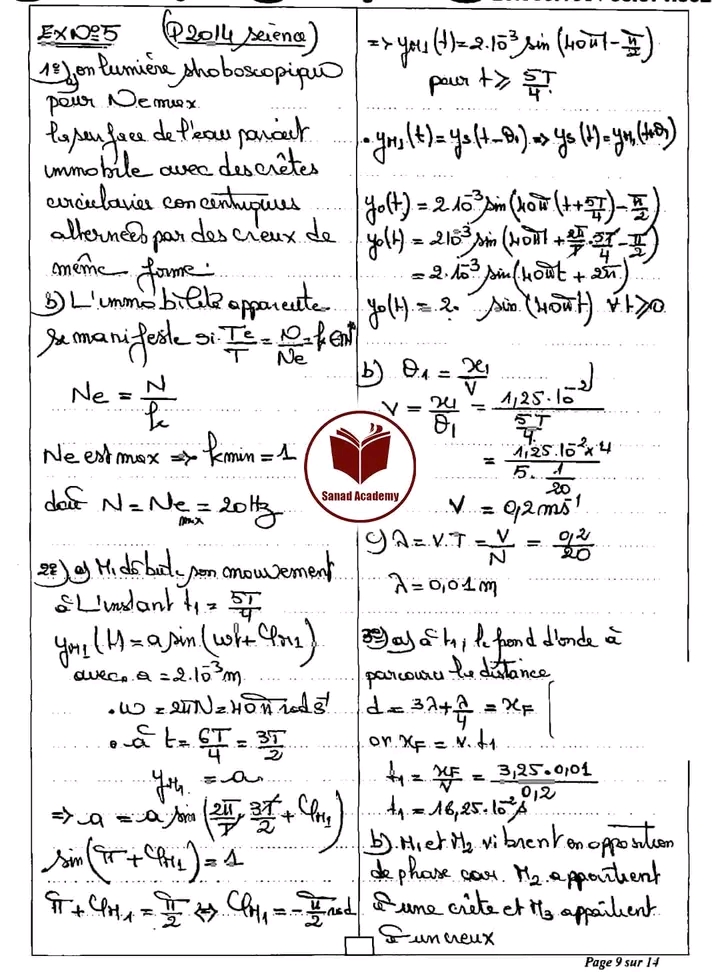 EX N°5 (P 2014 science)
1°) a) en lumière stroboscopique
pour Ne max
la surface de l'eau parait
immobile avec des crêtes
circulaires concentriques
alternées par des creux de
même forme.
b) L'immobilité apparente
se manifeste si Te/T = N/Ne = k ∈ IN*
Ne = N/k
Ne est max => kmin = 1
d'où N = Ne max = 20 Hz
2°) a) M1 débute son mouvement
à L'instant t1 = 5T/4
yM1(t) = a sin(wt + φM1)
avec • a = 2.10⁻³ m
• w = 2πN = 40π rad s⁻¹
• à t = 6T/4 = 3T/2
yM1 = a
=> a = a sin(2π/T . 3T/2 + φM1)
sin(π + φM1) = 1
π + φM1 = π/2 <=> φM1 = -π/2 rad
=> yM1(t) = 2.10⁻³ sin(40πt - π/2)
pour t ⩾ 5T/4.
• yM1(t) = ys(t - θ1) => ys(t) = yM1(t+θ1)
y0(t) = 2 10⁻³ sin(40π(t + 5T/4) - π/2)
y0(t) = 2 10⁻³ sin(40πt + 2π/T . 5T/4 - π/2)
= 2.10⁻³ sin(40πt + 2π)
y0(t) = 2. sin(40πt) ∀ t ⩾ 0
b) θ1 = x1/V
V = x1/θ1 = 1,25.10⁻²/(5T/4)
= 1,25.10⁻² x 4/(5. 1/20)
V = 0,2 ms⁻¹
Sanad Academy
c) λ = V.T = V/N = 0,2/20
λ = 0,01 m
3°) a) à t1, le front d'onde à
parcouru la distance
d = 3λ + λ/4 = xF
or xF = V. t1
t1 = xF/V = 3,25 . 0,01/0,2
t1 = 16,25.10⁻² s
b) M1 et M2 vibrent en opposition
de phase car. M2 appartient
à une crête et M3 appartient
à un creux
Page 9 sur 14